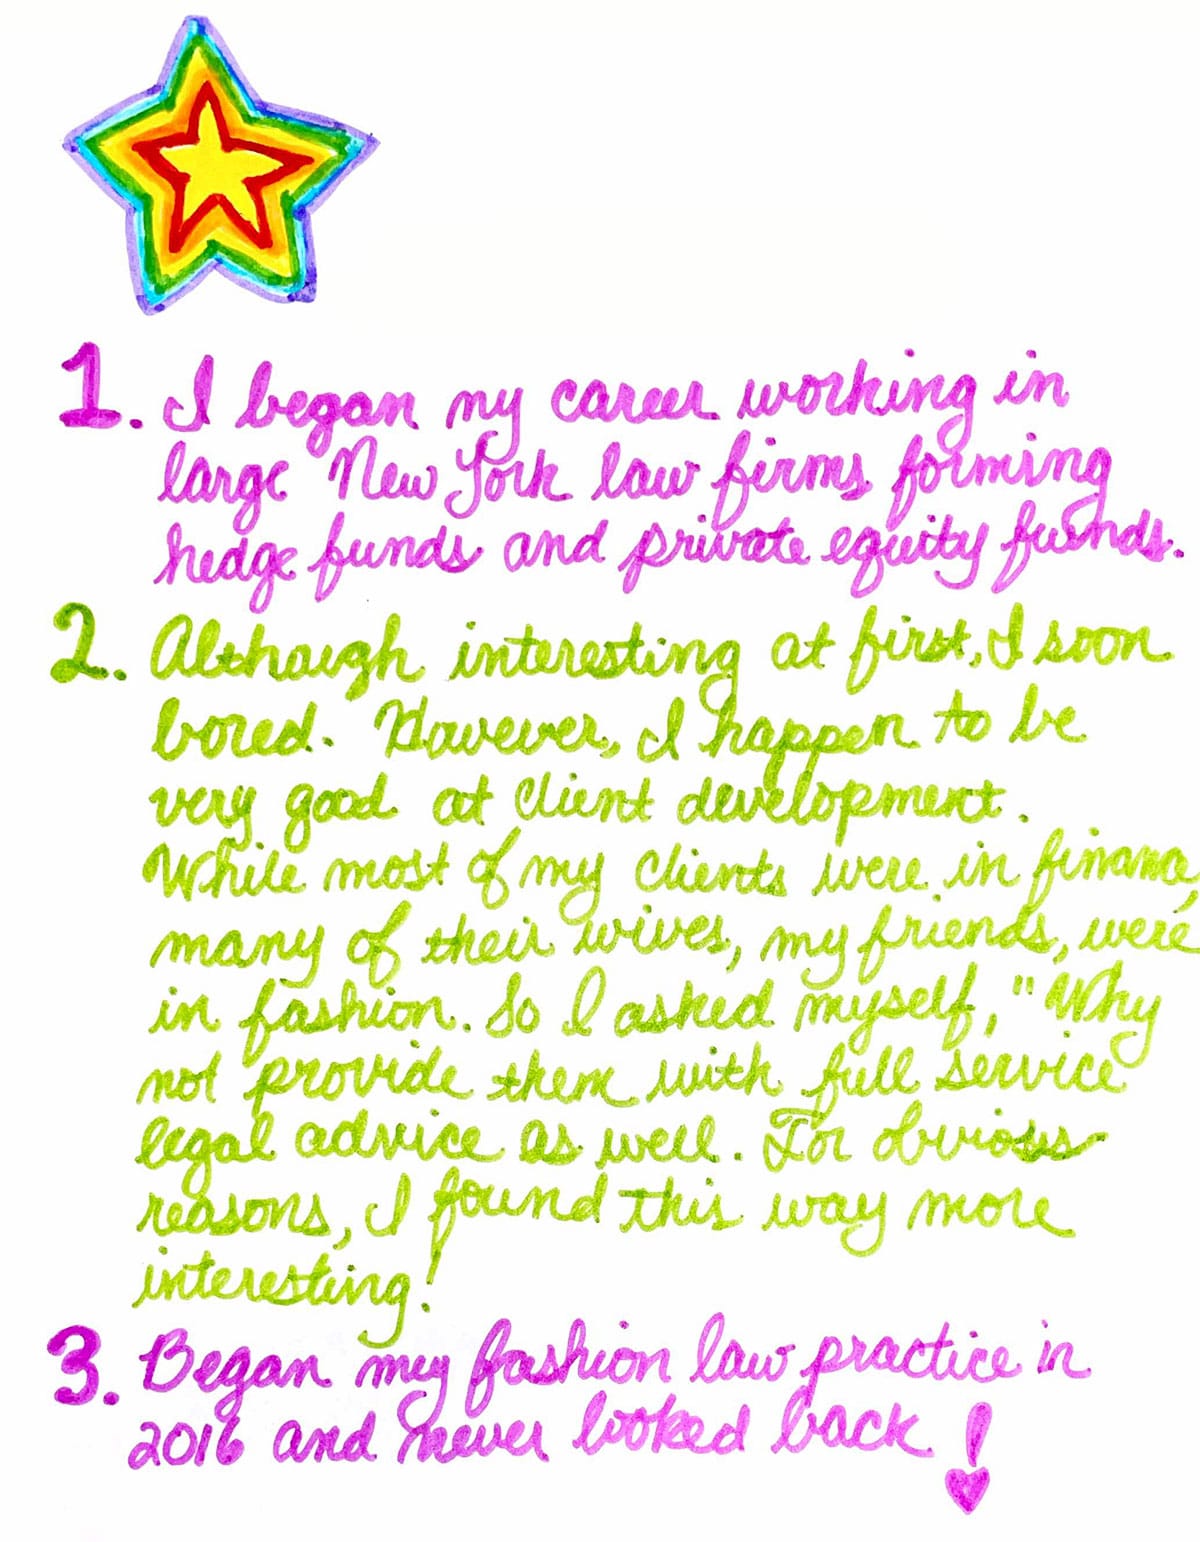 1. I began my career working in
large New York law firms forming
hedge funds and private equity funds.
2. Although interesting at first, I soon
bored. However, I happen to be
very good at client development.
While most of my clients were in finance,
many of their wives, my friends, were
in fashion. So I asked myself, "Why
not provide them with full service
legal advice as well. For obvious
reasons, I found this way more
interesting!
3. Began my fashion law practice in
2016 and never looked back!